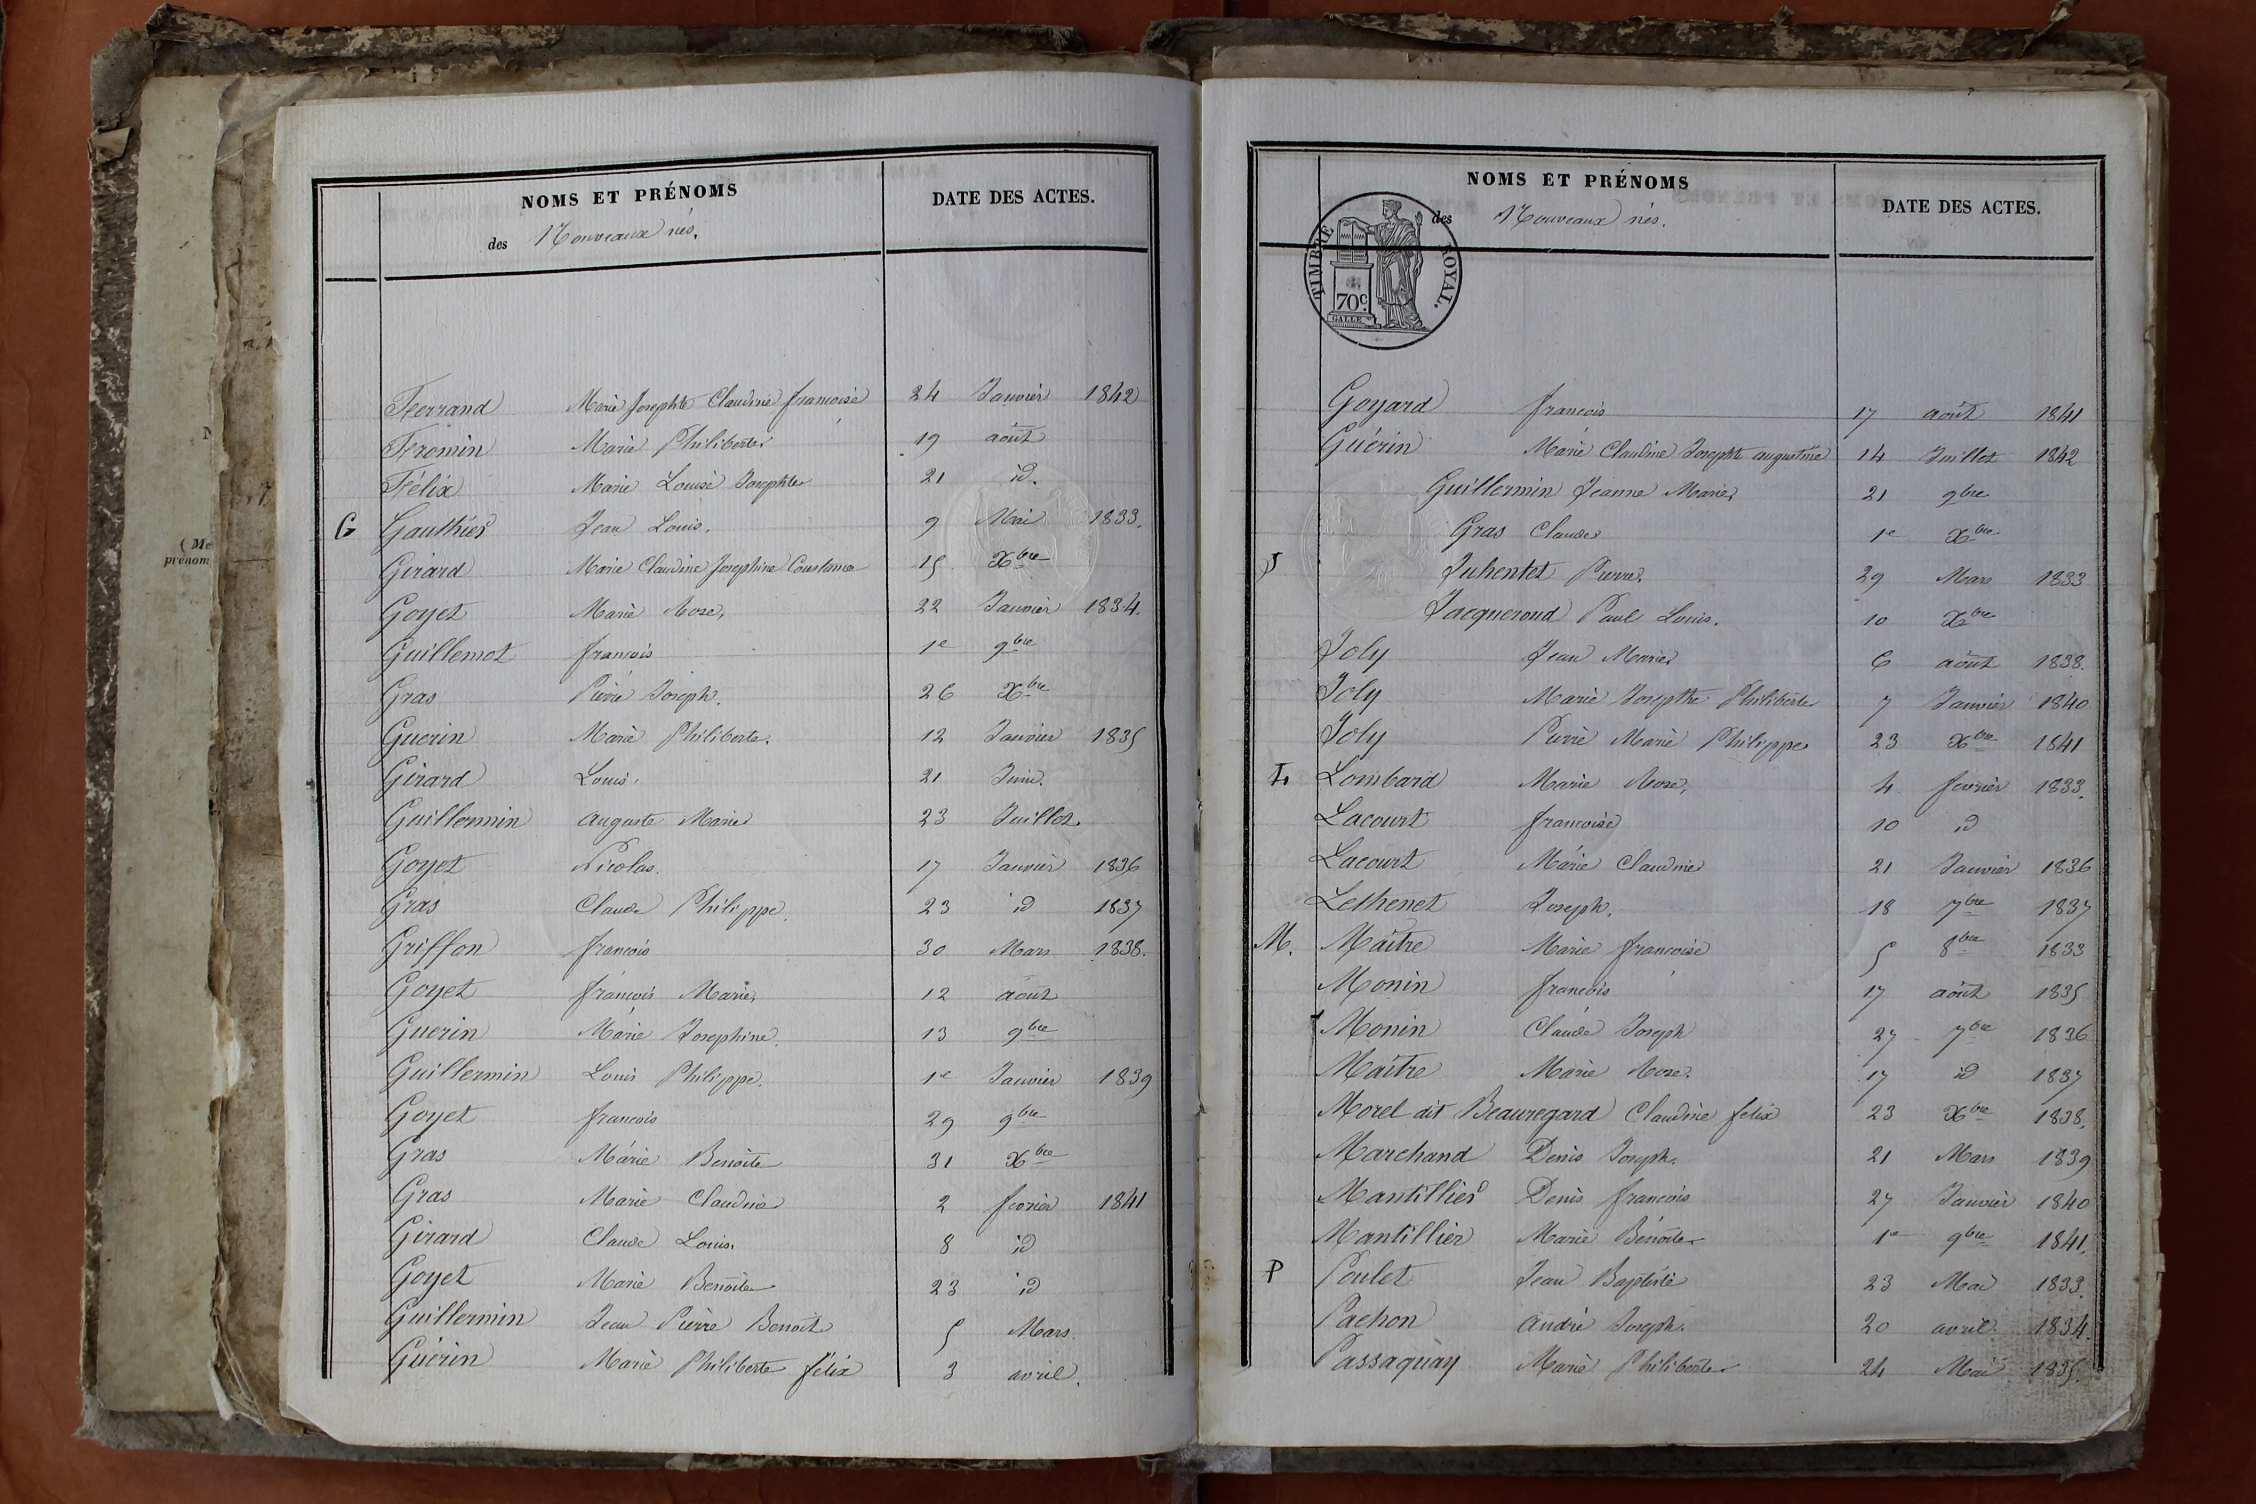 NOMS ET PRÉNOMS
DATE DES ACTES.
des Nouveaux nés.
Ferrand Marie Josephte Claudine francoise 24 Janvier 1842
Fromin Marie Philiberte 19 août
Félix Marie Louise Josephte 21 id.
G Gauthier Jean Louis. 9 Mai 1833.
Girard Marie Claudine Josephine Constance 15 Xbre
Goyet Marie Rose, 22 Janvier 1834.
Guillemot francois 1e 9bre
Gras Pierre Joseph. 26 Xbre
Guerin Marie Philiberte. 12 Janvier 1835
Girard Louis. 21 Juin.
Guillermin auguste Marie 23 Juillet.
Goyet Nicolas. 17 Janvier 1836
Gras Claude Philippe. 23 id 1837
Griffon francois 30 Mars 1838.
Goyet francois Marie, 12 août
Guerin Marie Josephine. 13 9bre
Guillermin Louis Philippe. 1e Janvier 1839
Goyet francois 29 9bre
Gras Marie Benoite 31 Xbre
Gras Marie Claudine 2 fevrier 1841
Girard Claude Louis. 8 id
Goyet Marie Benoite 23 id
Guillermin Jean Pierre Benoit 5 Mars.
Guérin Marie Philiberte félix 3 avril.
NOMS ET PRÉNOMS
DATE DES ACTES.
des Nouveaux nés.
TIMBRE ROYAL.
70c
GALLE
Goyard francois 17 août 1841
Guérin Marie Claudine Josephte augustine 14 Juillet 1842
Guillermin Jeanne Marie, 21 9bre
Gras Claude 1e Xbre
J Juhentet Pierre. 29 Mars 1833
Jacqueroud Paul Louis. 10 Xbre
Joly Jean Marie 6 août 1838.
Joly Marie Josepthe Philiberte 7 Janvier 1840
Joly Pierre Marie Philippe 23 Xbre 1841
L Lombard Marie Rose, 4 fevrier 1833.
Lacourt francoise 10 id
Lacourt Marie Claudine 21 Janvier 1836
Lethenet Joseph. 18 7bre 1837
M. Maitre Marie francoise 5 8bre 1833
Monin francois 17 août 1835
Monin Claude Joseph 27 7bre 1836
Maitre Marie Rose. 17 id 1837
Morel dit Beauregard Claudine felix 23 Xbre 1838.
Marchand Denis Joseph. 21 Mars 1839
Mantillier Denis francois 27 Janvier 1840
Mantillier Marie Bénoite 1e 9bre 1841.
P Poulet Jean Baptiste 23 Mai 1833.
Pachon andré Joseph. 20 avril 1834.
Passaquay Marie Philiberte 24 Mai 1835.
(Me
prénom